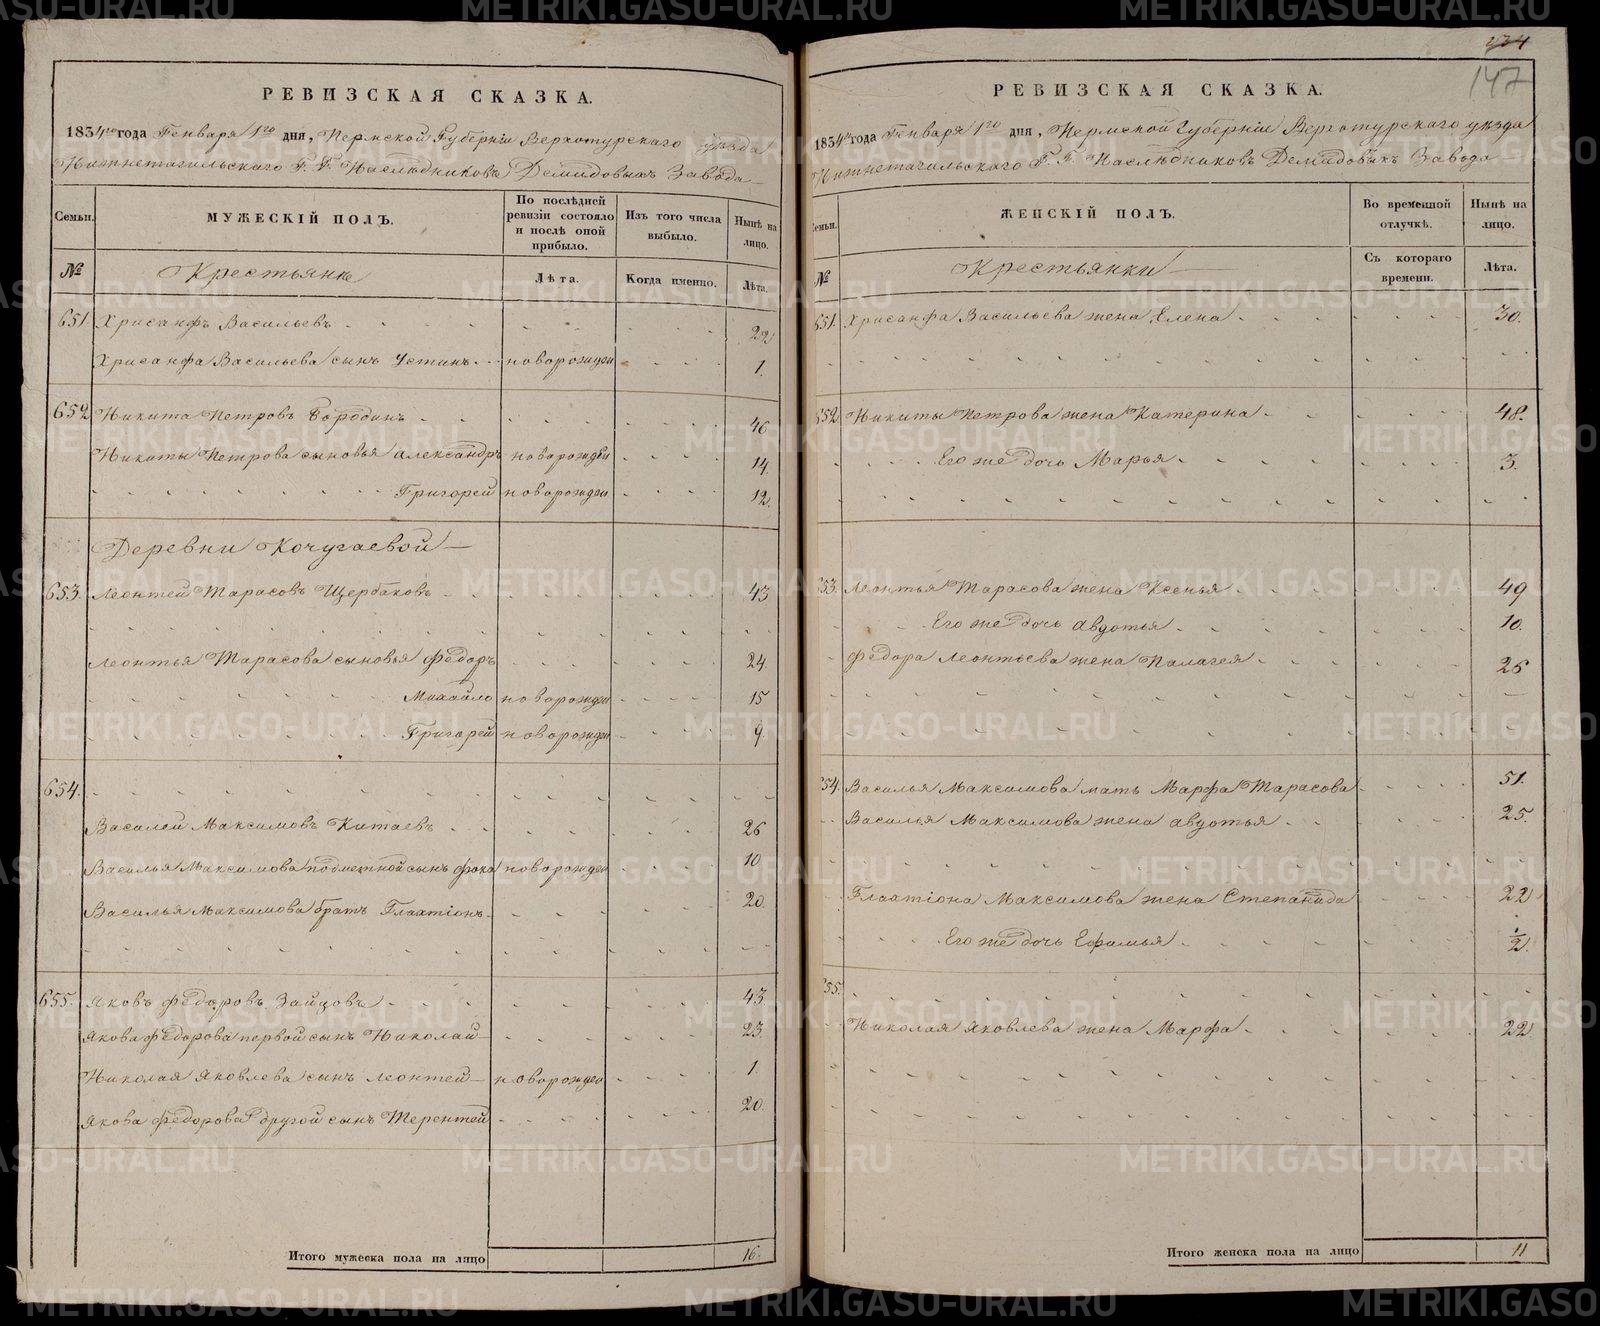 РЕВИЗСКАЯ СКАЗКА.
1834го года Генваря 1го дня, Пермской Губерніи Верхотурскаго уѣзда
Нижнетагильскаго Г. Г. Наслѣдниковъ Демидовыхъ Завода
Семьи.
МУЖЕСКІЙ ПОЛЪ.
По послѣдней ревизіи состояло и послѣ оной прибыло.
Изъ того числа выбыло.
Нынѣ на лицо.
№
Крестьяне
Лѣта.
Когда именно.
Лѣта.
651 Хрисанфъ Васильевъ 22
Хрисанфа Васильева сынъ Устинъ новорожден 1.
652 Никита Петровъ Бородинъ 46
Никиты Петрова сыновья Александръ новорожден 14.
Григорей новорожден 12.
Деревни Кочугаевой
653. Леонтей Тарасовъ Щербаковъ 43
Леонтья Тарасова сыновья Федоръ 24.
Михайло новорожден 15
Григорей новорожден 9.
654.
Василей Максимовъ Китаевъ 26
Василья Максимова подметной сынъ Фока новорожден 10
Василья Максимова братъ Глахтіонъ 20.
655. Яковъ Федоровъ Зайцовъ 43
Якова Федорова первой сынъ Николай 23.
Николая Яковлева сынъ Леонтей новорожден 1.
Якова Федорова другой сынъ Терентей 20.
Итого мужеска пола на лицо 16.
147
РЕВИЗСКАЯ СКАЗКА.
1834го года Генваря 1го дня, Пермской Губерніи Верхотурскаго уѣзда
Нижнетагильскаго Г. Г. Наслѣдниковъ Демидовыхъ Завода
Семьи.
ЖЕНСКІЙ ПОЛЪ.
Во временной отлучкѣ.
Нынѣ на лицо.
№
Крестьянки
Съ котораго времени.
Лѣта.
651. Хрисанфа Васильева жена Елена 30.
652. Никиты Петрова жена Катерина 48.
Его же дочь Марья 3.
653. Леонтья Тарасова жена Ксенья 49
Его же дочь Авдотья 10.
Федора Леонтьева жена Палагея 26
654. Василья Максимова мать Марфа Тарасова 51.
Василья Максимова жена Авдотья 25.
Глахтіона Максимова жена Степанида 22
Его же дочь Ефимья 1/2.
655.
Николая Яковлева жена Марфа 22
Итого женска пола на лицо 11
METRIKI.GASO-URAL.RU